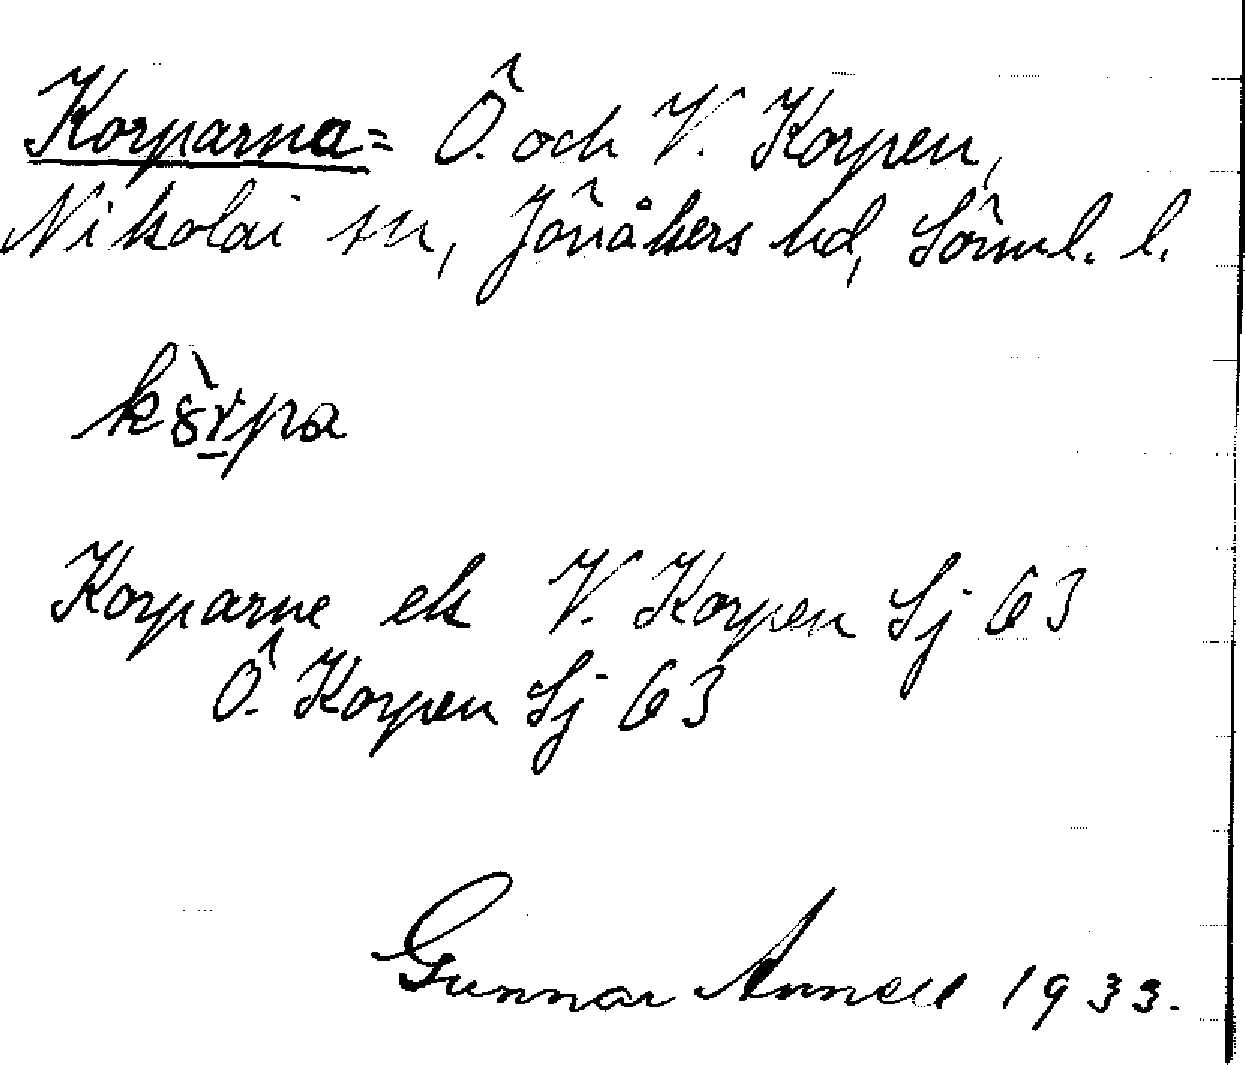 Korparna = Ö. och V. Korpen,
Nikolai sn, Jönåkers hd, Sörml. l.
kȣ̀rpa
Korparne ek V. Korpen Sj 63
Ö. Korpen Sj 63
Gunnar Annell 1933.